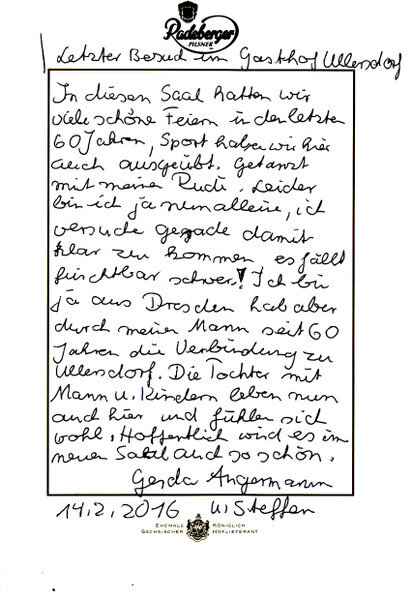 Radeberger
PILSNER
Letzter Besuch im Gasthof Ullersdorf
In diesen Saal hatten wir
viele schöne Feiern in der letzten
60 Jahren, Sport haben wir hier
auch ausgeübt. Getanzt
mit meinen Rudi. Leider
bin ich ja nun alleine, ich
versuche gerade damit
klar zu kommen es fällt
furchtbar schwer! Ich bin
ja aus Dresden hab aber
durch meinen Mann seit 60
Jahren die Verbindung zu
Ullersdorf. Die Tochter mit
Mann u. Kindern leben nun
auch hier und fühlen sich
wohl. Hoffentlich wird es im
neuen Saal auch so schön.
Gerda Angermann
14.2.2016 u. Steffen
EHEMALS KÖNIGLICH
SÄCHSISCHER HOFLIEFERANT